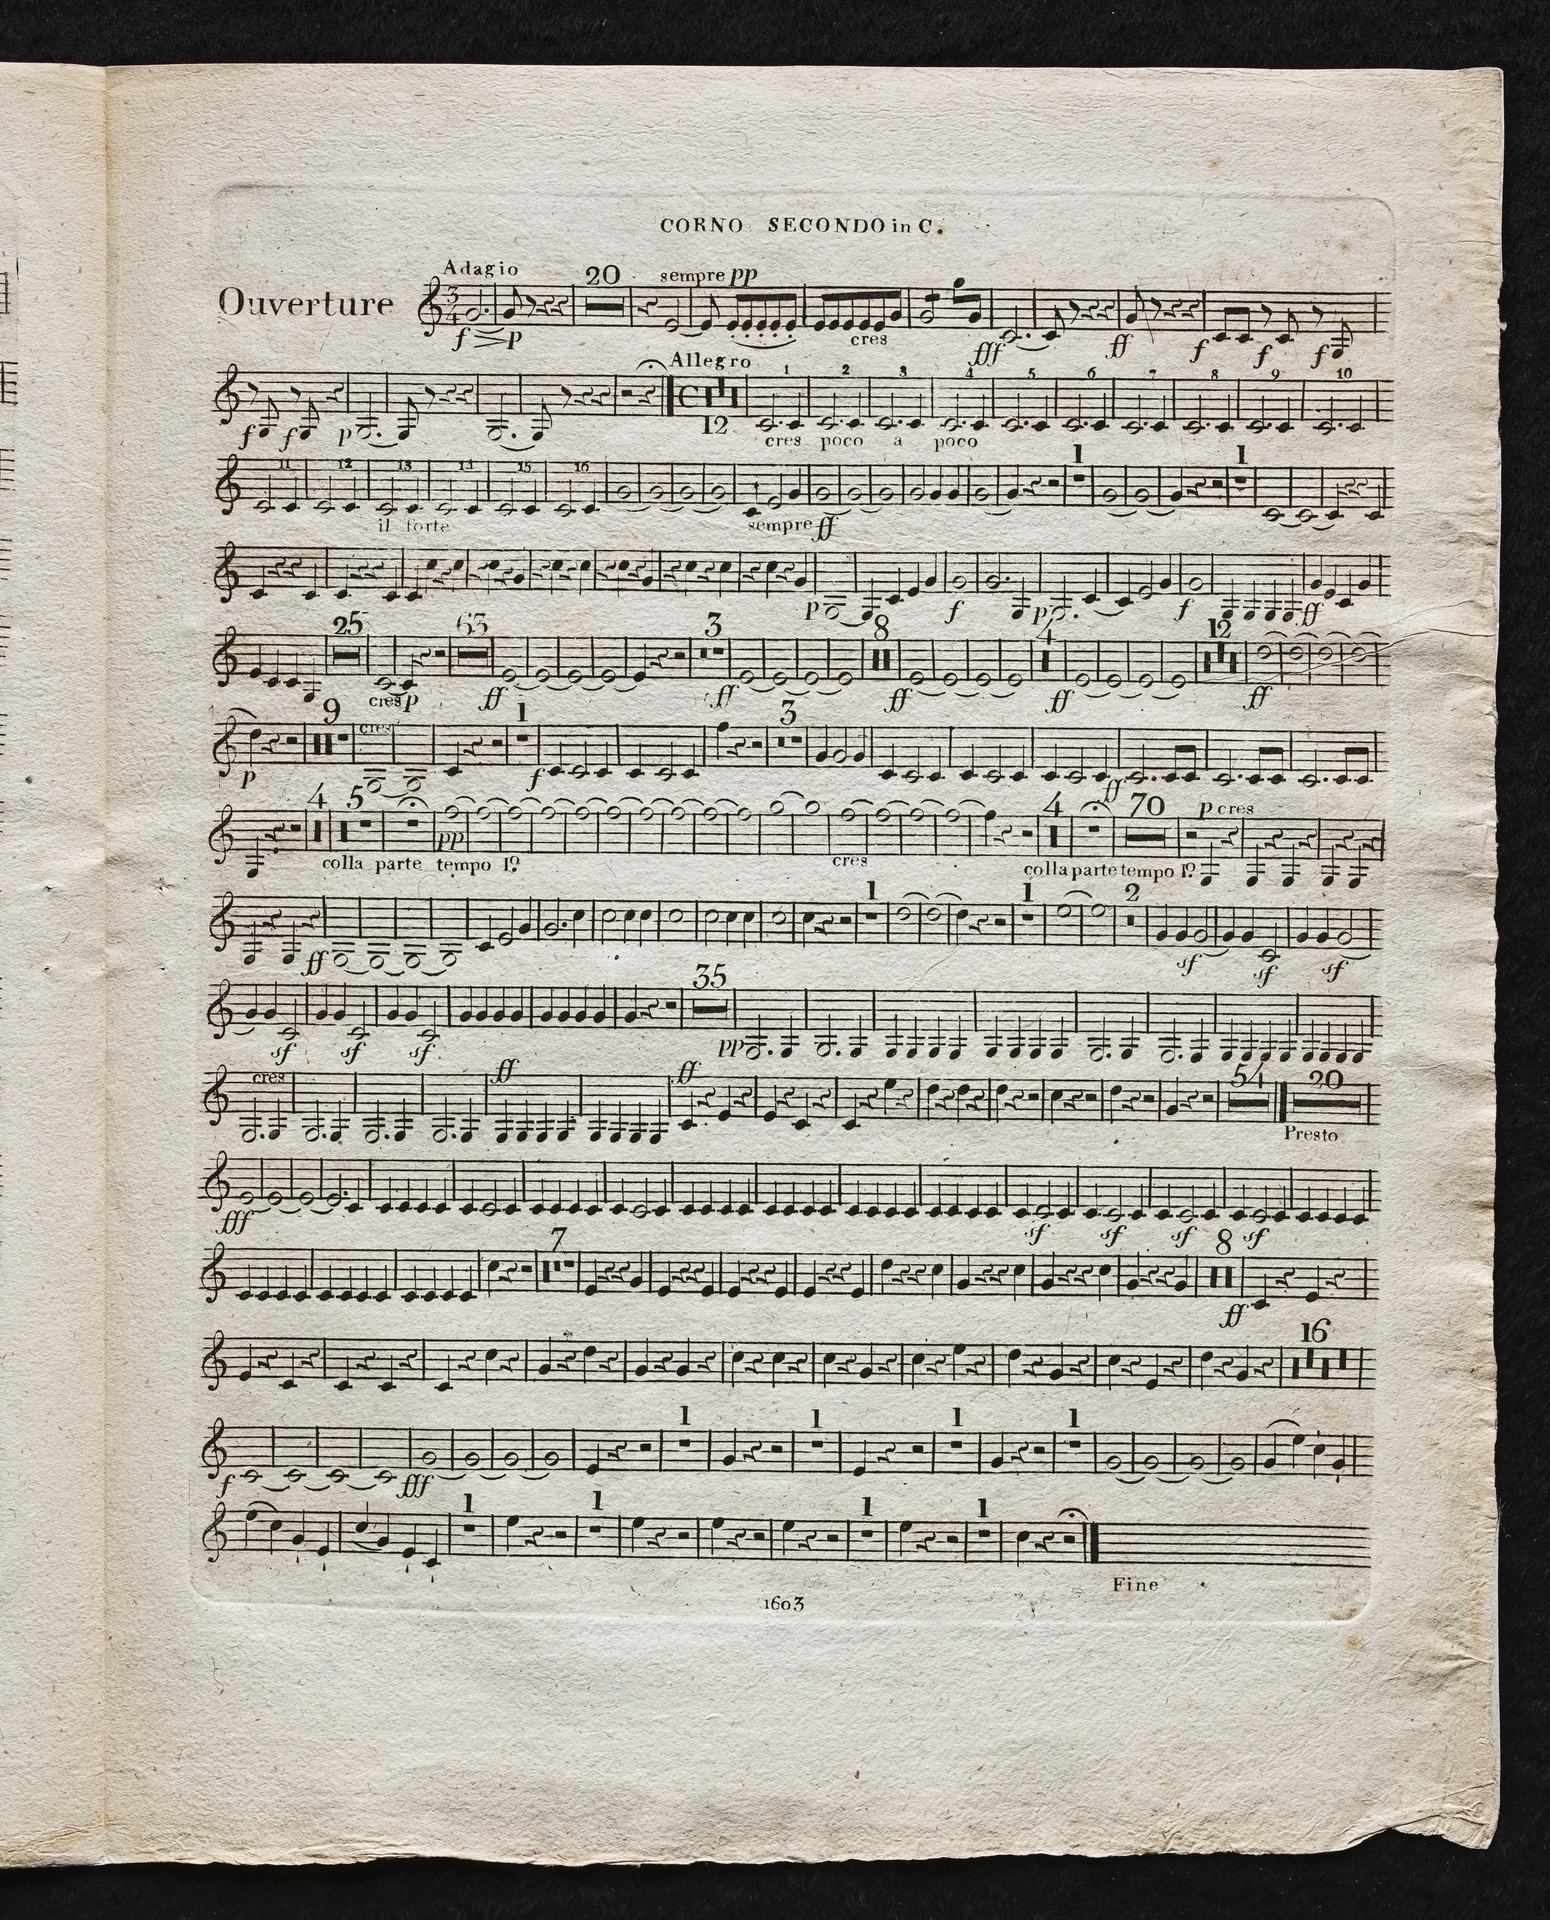 CORNO SECONDO in C.
Adagio 20 sempre pp
Ouverture 3 4
f p cres fff ff f f f
Allegro 1 2 3 4 5 6 7 8 9 10
C
f f p 12 cres poco a poco
1 1
11 12 13 14 15 16
il forte sempre ff
p f p f ff
25 63 3 8 4 12
cres p ff ff ff ff ff
9 cres 1 3
p f ff
4 5 4 70 p cres
pp
colla parte tempo 1º cres colla parte tempo 1º
1 1 2
ff sf sf sf
35
sf sf sf pp
cres ff ff 54 20
Presto
fff sf sf sf sf
7 8
ff
16
1 1 1 1
f fff
1 1 1 1
Fine
1603